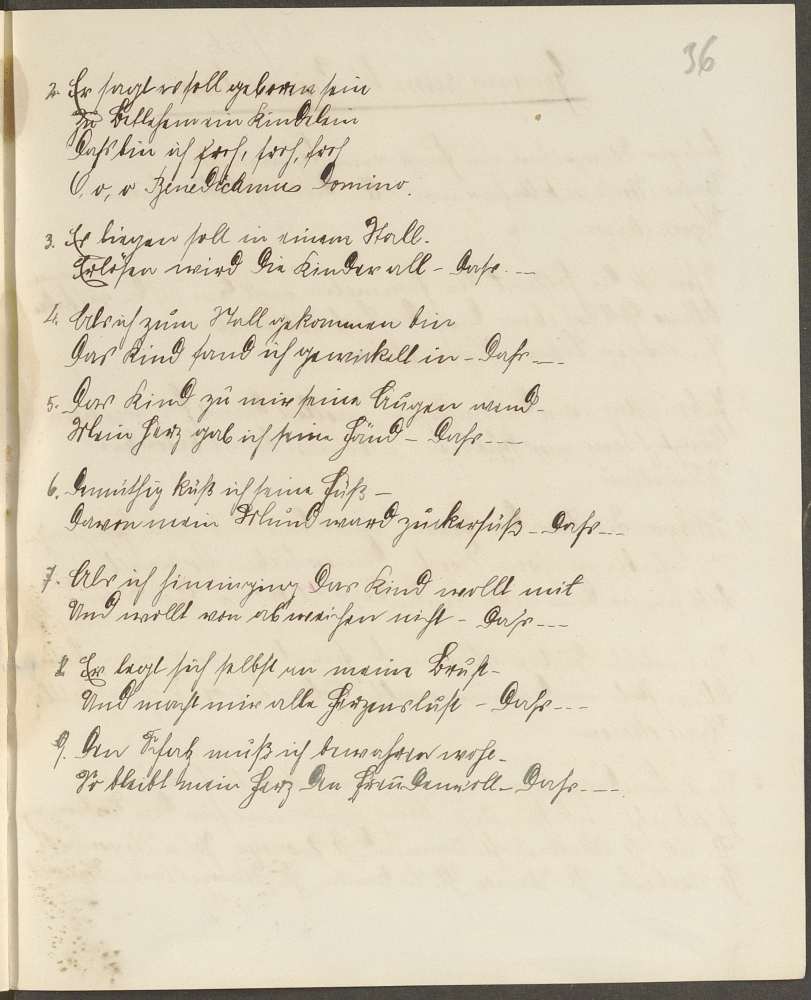 36
2. Er sagt es soll geboren sein
Zu Betlehem ein Kindelein
Dafs bin ich froh, froh, froh
O, o, o Benedicamus Domino.
3. Er liegen soll in einem Stall.
Erlösen wird die Kinder all - Dafs. --
4. Als ich zum Stall gekommen bin
Das Kind fand ich gewickelt in - Dafs --
5. Das Kind zu mir seine Augen wend-
Mein Herz gab ich seine Händ - Dafs ---
6. Demüthig küß ich seine Füß -
Davon mein Mund ward zuckersüß - Dafs---
7. Als ich hineinging Das Kind wollt mit
Und wollt von abweichen nicht - Dafs---
8 Er legt sich selbst an meine Brust-
Und macht mir alle Herzenslust - Dafs---
9. Den Schatz muß ich bewahren wohl-
So bleibt mein Herz den Freudenvoll- Dafs.---